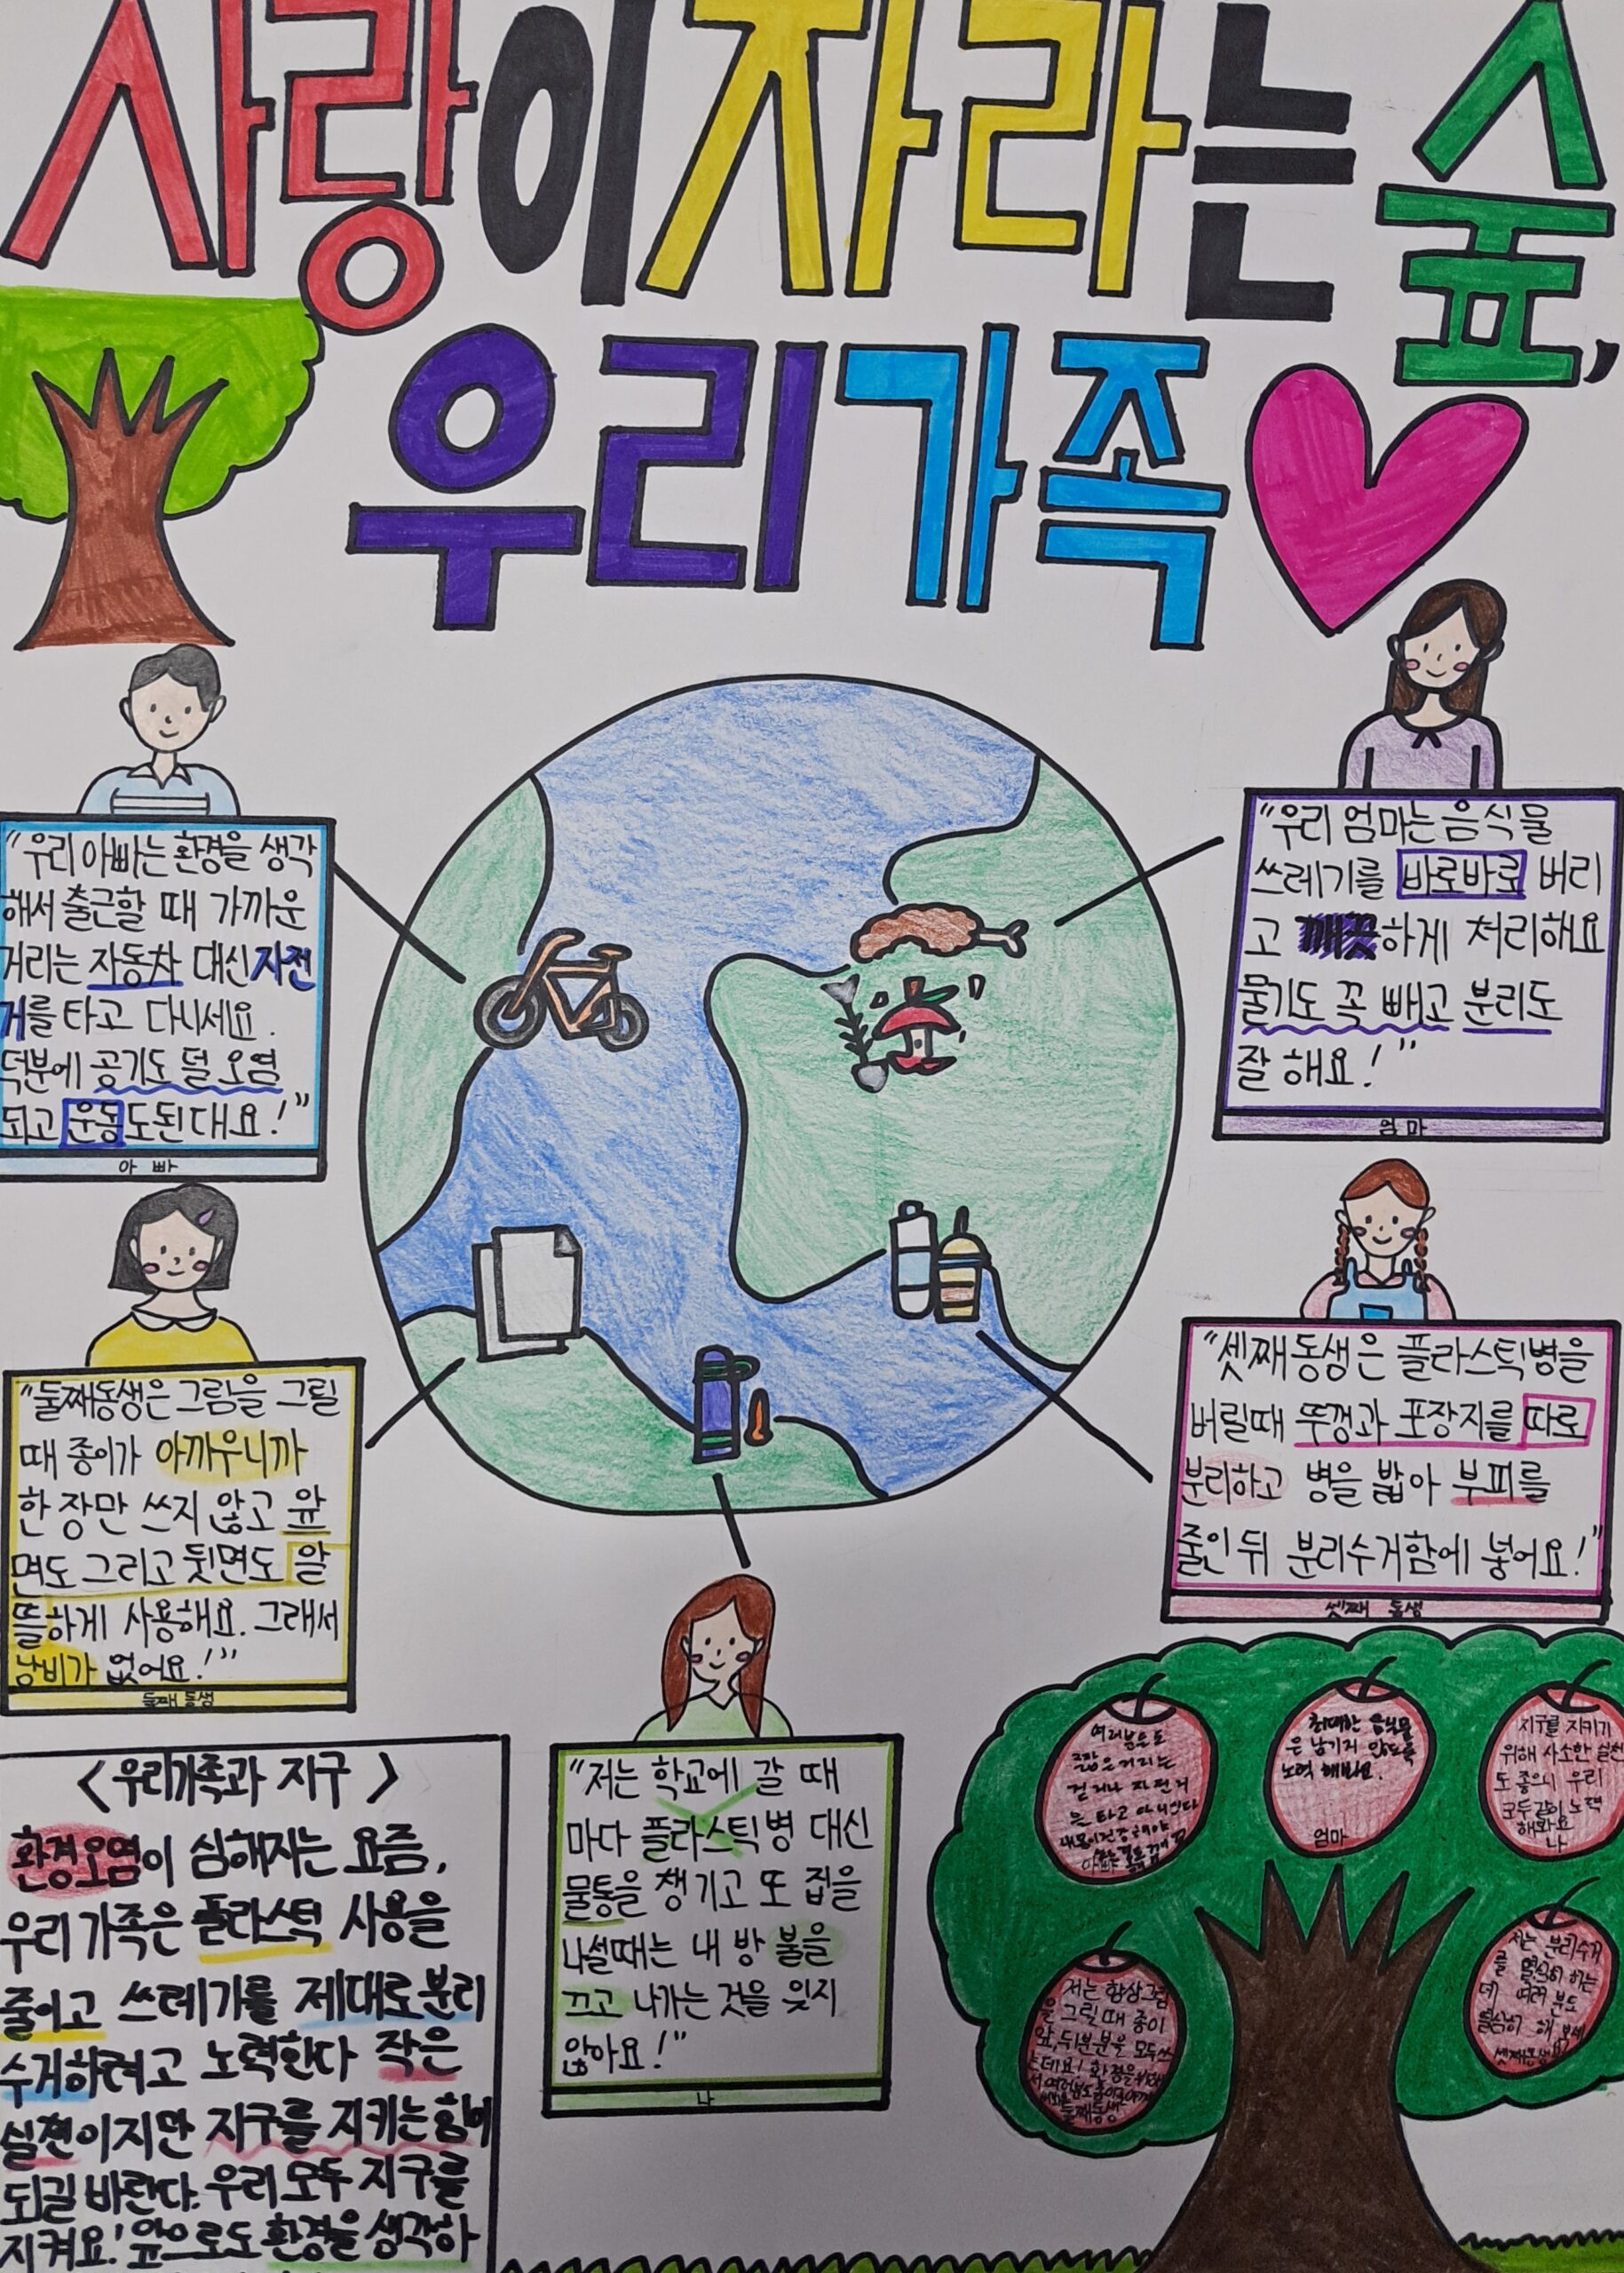 사랑이 자라는 숲,
우리 가족
"우리 아빠는 환경을 생각
해서 출근할 때 가까운
거리는 자동차 대신 자전
거를 타고 다니세요.
덕분에 공기도 덜 오염
되고 운동도 된대요!"
아빠
"우리 엄마는 음식물
쓰레기를 바로바로 버리
고 하게 처리해요
물기도 꼭 빼고 분리도
잘 해요!"
엄마
"둘째동생은 그림을 그릴
때 종이가 아까우니까
한 장만 쓰지 않고 앞
면도 그리고 뒷면도 알
뜰하게 사용해요. 그래서
낭비가 없어요!"
둘째 동생
"셋째 동생은 플라스틱병을
버릴때 뚜껑과 포장지를 따로
분리하고 병을 밟아 부피를
줄인 뒤 분리수거함에 넣어요!"
셋째 동생
"저는 학교에 갈 때
마다 플라스틱병 대신
물통을 챙기고 또 집을
나설때는 내 방 불을
끄고 나가는 것을 잊지
않아요!"
나
<우리가족과 지구>
환경오염이 심해지는 요즘,
우리 가족은 플라스틱 사용을
줄이고 쓰레기를 제대로 분리
수거하려고 노력한다 작은
실천이지만 지구를 지키는 힘이
되길 바란다. 우리 모두 지구를
지켜요! 앞으로도 환경을 생각하
여러분도
짧은거리는
걷거나 자전거
를 타고 다니세요
아빠
최대한 음식물
은 남기지 않도록
노력 해봐요.
엄마
지구를 지키기
위해 사소한 실천
도 좋으니 우리
모두같이 노력
해봐요
나
저는 항상 그림
을 그릴 때 종이
앞,뒤부분을 모두쓰
는데요! 환경을 위해
서 여러분도
둘째동생
저는 분리수거
를 열심히 하는
데 여러 분도
열심히 해 보세
셋째동생